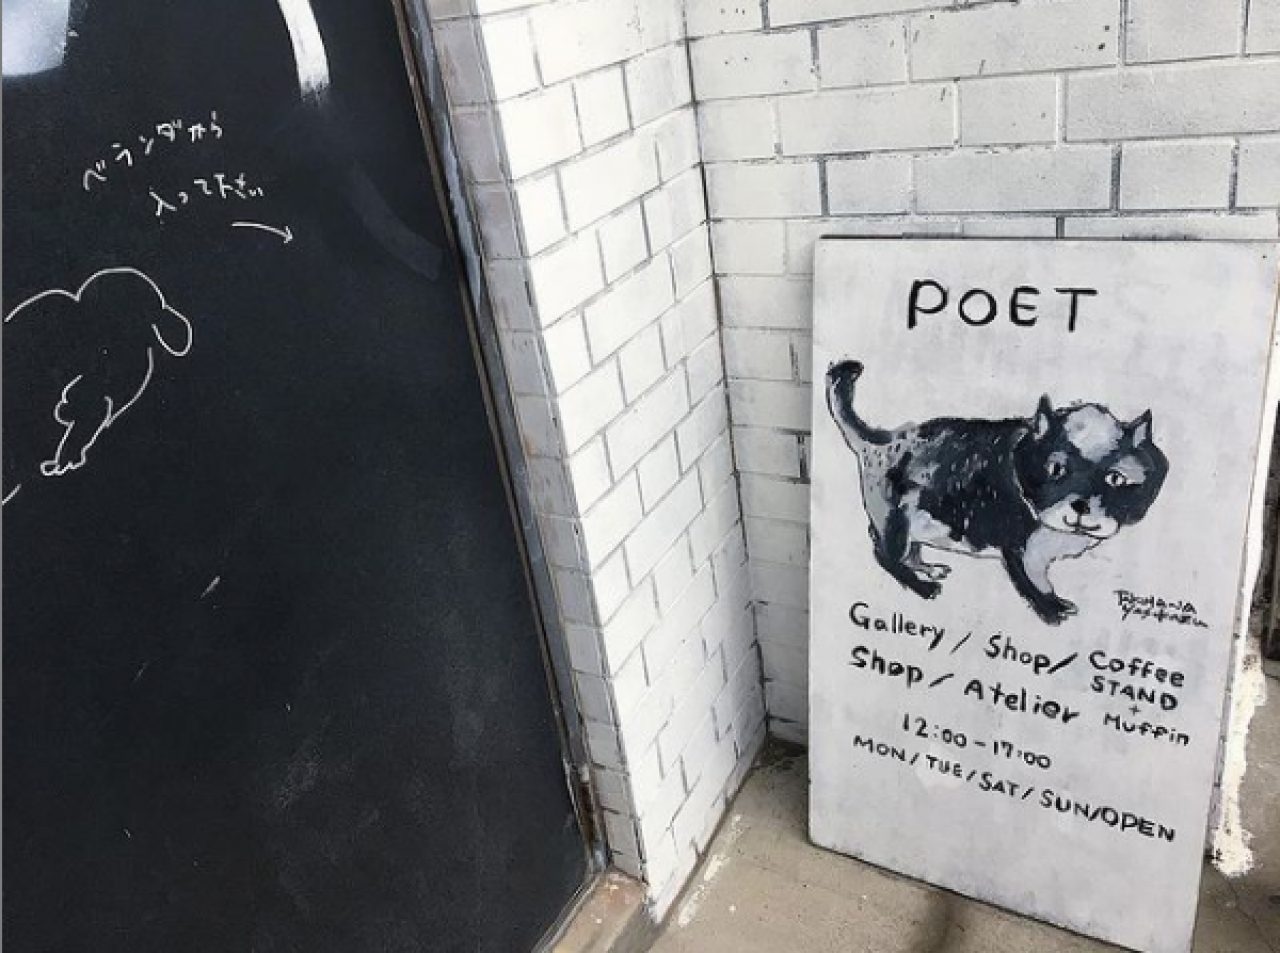 ベランダから
入って下さい
POET
Gallery / Shop / Coffee
STAND
+
Muffin
Shop / Atelier
12:00-17:00
MON/TUE/SAT/SUN/OPEN